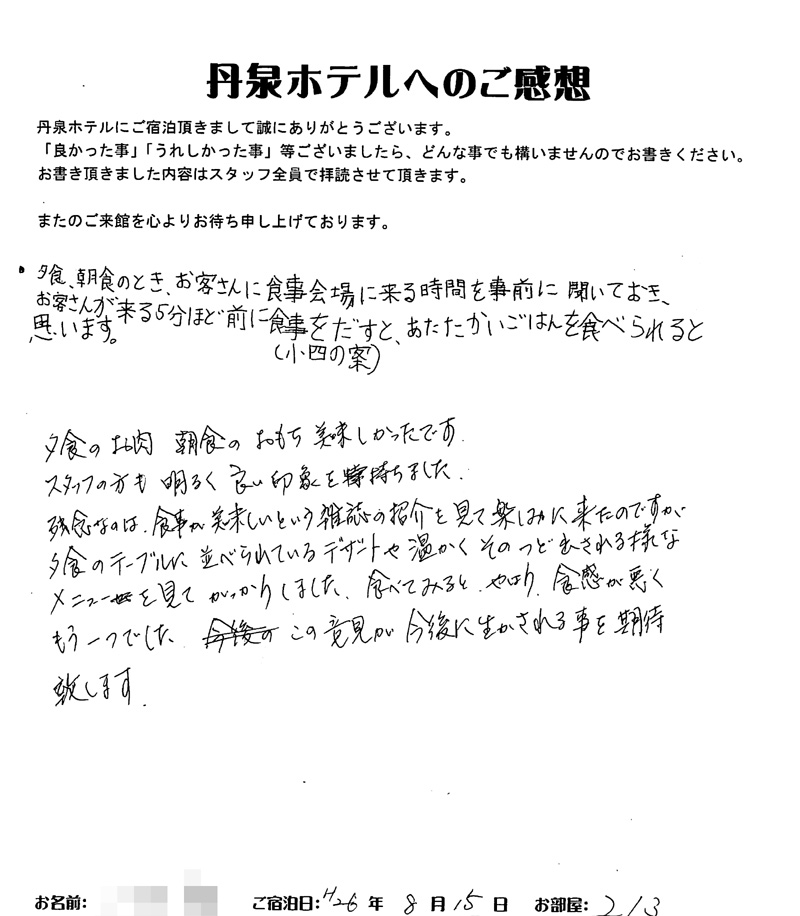 丹泉ホテルへのご感想
丹泉ホテルにご宿泊頂きまして誠にありがとうございます。
「良かった事」「うれしかった事」等ございましたら、どんな事でも構いませんのでお書きください。
お書き頂きました内容はスタッフ全員で拝読させて頂きます。
またのご来館を心よりお待ち申し上げております。
夕食、朝食のとき、お客さんに食事会場に来る時間を事前に聞いておき、
お客さんが来る5分ほど前に食事をだすと、あたたかいごはんを食べられると
思います。
(小四の案)
夕食のお肉 朝食のおもち 美味しかったです.
スタッフの方も 明るく 良い印象を持ちました.
残念なのは、食事が美味しいという雑誌の紹介を見て楽しみに来たのですが
夕食のテーブルに並べられているデザートや温かくそのつど出される様な
メニューを見て がっかりしました. 食べてみると、やはり、食感が悪く
もう一つでした. この意見が今後に生かされる事を期待
致します.
お名前: ご宿泊日: H26 年 8 月 15 日 お部屋: 213